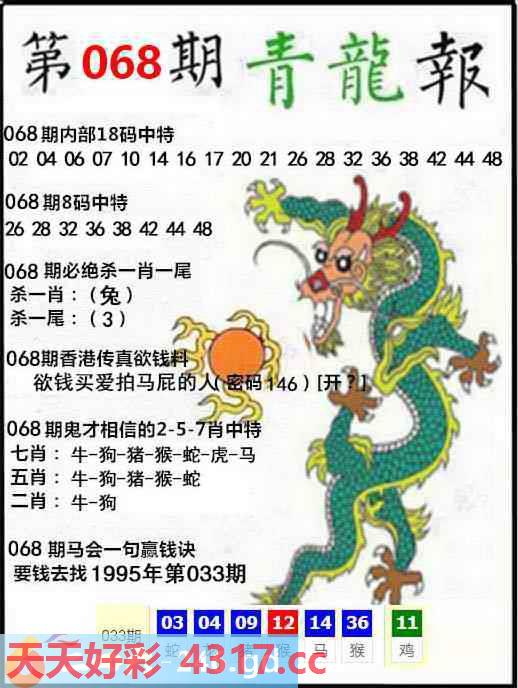 第068期 青龍報
068期内部18码中特
02 04 06 07 10 14 16 17 20 21 26 28 32 36 38 42 44 48
068期8码中特
26 28 32 36 38 42 44 48
068 期必绝杀一肖一尾
杀一肖：（兔）
杀一尾：（3）
068期香港传真欲钱料
欲钱买爱拍马屁的人(密码146)[开?]
068期鬼才相信的2-5-7肖中特
七肖：牛-狗-猪-猴-蛇-虎-马
五肖：牛-狗-猪-猴-蛇
二肖：牛-狗
068期马会一句赢钱诀
要钱去找1995年第033期
033期 03 04 09 12 14 36 11
蛇 猴 马 猴 鸡
天天好彩 4317.cc